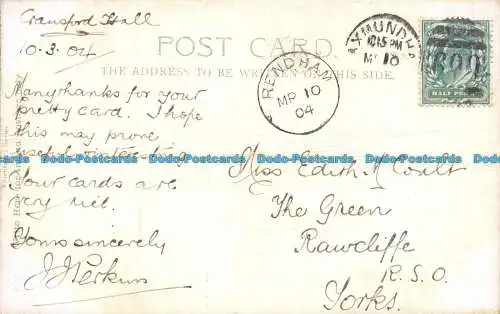 Cransford Hall
10.3.04
Many thanks for your
pretty card. I hope
this may prove
useful
Your cards are
very nice.
Yours sincerely
J J Perkins
POST CARD.
THE ADDRESS TO BE WRITTEN ON THIS SIDE.
RENDHAM
MR 10
04
AXMUNDHA
1015 PM
MR 10
HALF PENNY
Dodo-Postcards Dodo-Postcards Dodo-Postcards Dodo-Postcards Dodo-Postcards
Miss Edith M Coult
The Green
Rawcliffe
R.S.O.
Yorks.